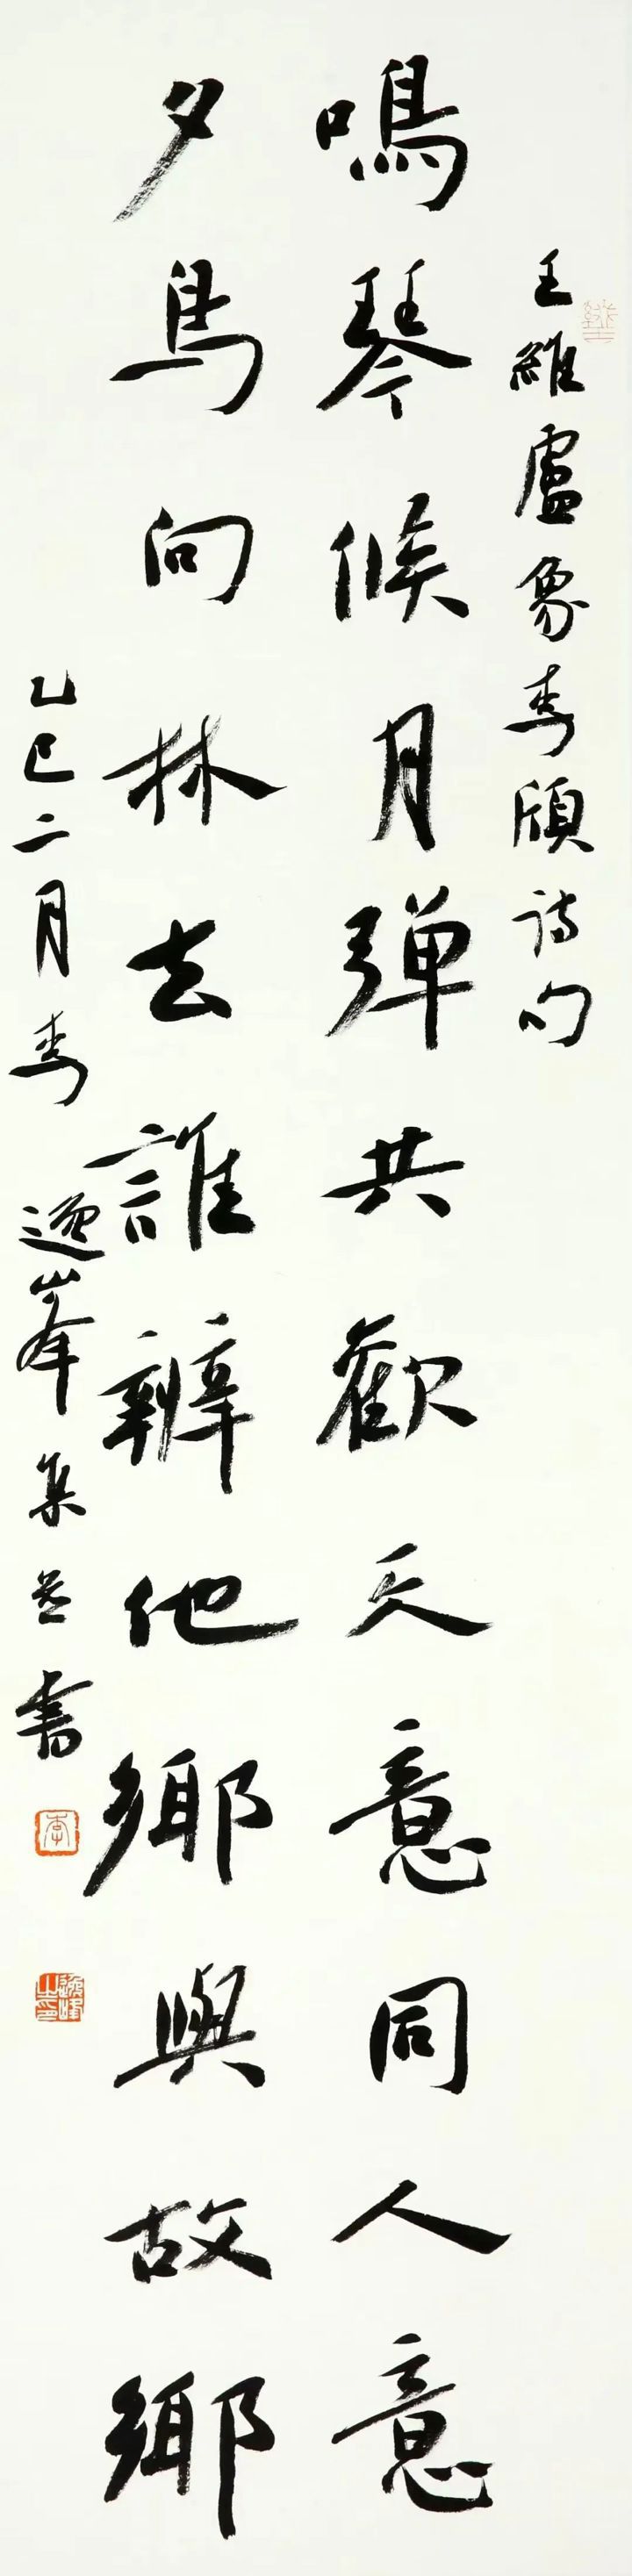 王維盧象李頎诗句
鳴琴候月弹共歡天意同人意
夕鳥向林去誰辨他鄉與故鄉
乙巳二月李逸峯集並書
李
逸峰之印